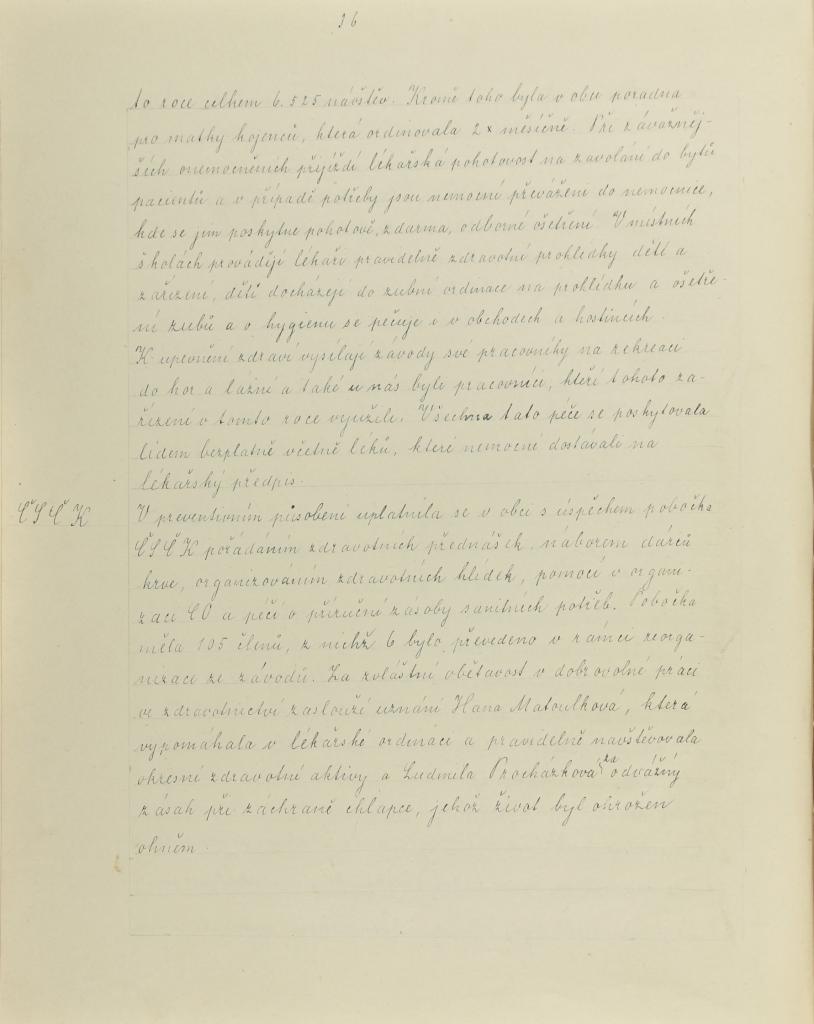 36
to roce celkem 6.525 návštěv. Kromě toho byla v obci poradna
pro matky kojenců, která ordinovala 2x měsíčně. Při závažněj-
ších onemocněních přijíždí lékařská pohotovost na zavolání do bytů
pacientů a v případě potřeby jsou nemocní převáženi do nemocnice,
kde se jim poskytne pohotově, zdarma, odborné ošetření. V místních
školách provádějí lékaři pravidelně zdravotní prohlídky dětí a
zařízení, děti docházejí do zubní ordinace na prohlídku a ošetře-
ní zubů a o hygienu se pečuje i v obchodech a hostincích.
K upevnění zdraví vysílají závody své pracovníky na rekreaci
do hor a lázní a také u nás byli pracovníci, kteří tohoto za-
řízení v tomto roce využili. Všechna tato péče se poskytovala
lidem bezplatně včetně léků, které nemocní dostávali na
lékařský předpis.
ČSČK
V preventivním působení uplatnila se v obci s úspěchem pobočka
ČSČK pořádáním zdravotních přednášek, náborem dárců
krve, organizováním zdravotních hlídek, pomocí v organi-
zaci CO a péčí o příruční zásoby sanitních potřeb. Pobočka
měla 105 členů, z nichž 6 bylo převedeno v rámci reorga-
nizace ze závodů. Za zvláštní obětavost v dobrovolné práci
ve zdravotnictví zaslouží uznání Hana Matoulková, která
vypomáhala v lékařské ordinaci a pravidelně navštěvovala
okresní zdravotní aktivy a Ludmila Procházková za odvážný
zásah při záchraně chlapce, jehož život byl ohrožen
ohněm.